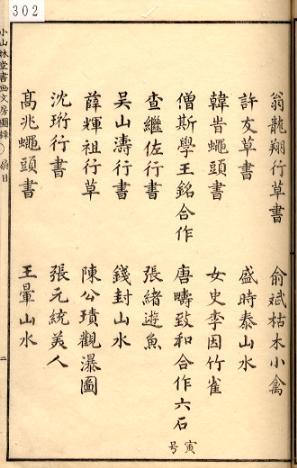 302
翁龍翔行草書 俞斌枯木小禽
許友草書 盛時泰山水
韓 蠅頭書 女史李因竹雀
僧斯學王銘合作 唐疇致和合作六石
寅号
查繼佐行書 張緒遊魚
吳山濤行書 錢封山水
薛輝祖行草 陳公 觀瀑圖
沈珩行書 張元統美人
高兆蠅頭書 王暈山水
小山林堂書画文房圖錄 扇目 二